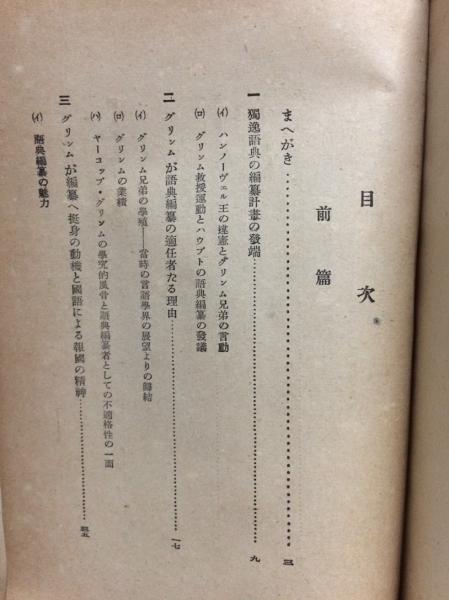 目次
前篇
まへがき……………………三
一 獨逸語典の編纂計畫の發端……………………九
(イ) ハンノーヴェル王の違憲とグリンム兄弟の言動
(ロ) グリンム救援運動とハウプトの語典編纂の發議
二 グリンムが語典編纂の適任者たる理由……………………一七
(イ) グリンム兄弟の學殖——當時の言語學界の展望よりの歸結
(ロ) グリンムの業績
(ハ) ヤーコップ・グリンムの學究的風骨と語典編纂者としての不適格性の一面
三 グリンムが編纂へ挺身の動機と國語による報國の精神……………………四五
(イ) 語典編纂の魅力